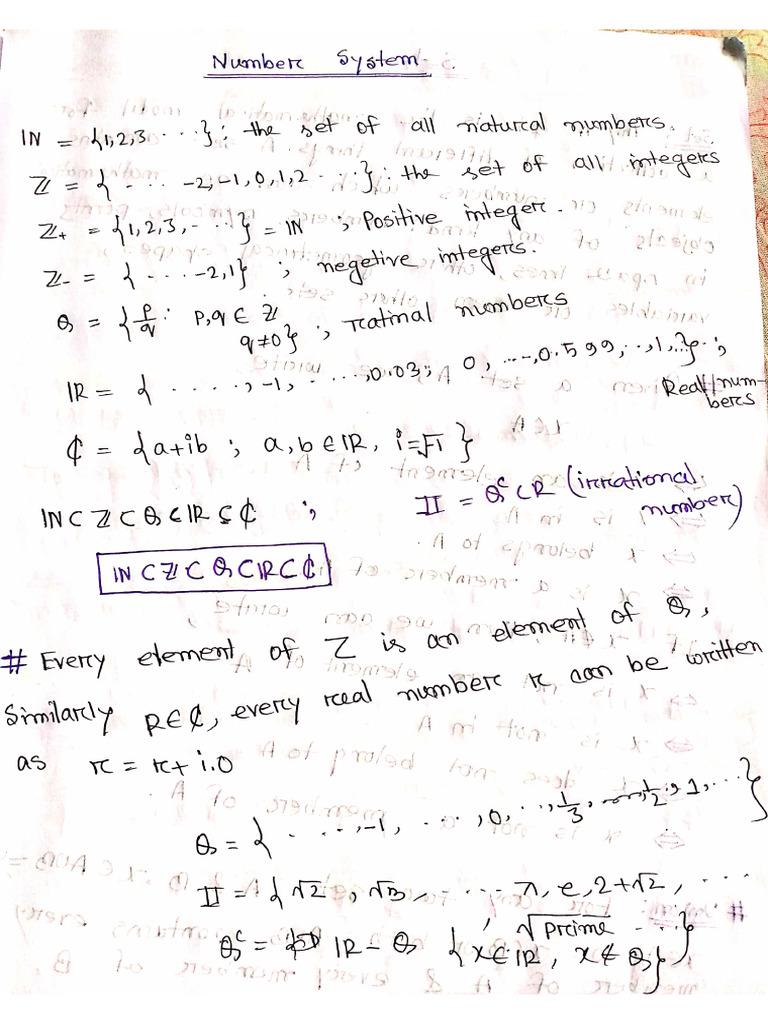 Number System
IN = {1,2,3 ...}; the set of all natural numbers.
ℤ = { .... -2,-1,0,1,2 ....}: the set of all integers
ℤ+ = {1,2,3,-...} = IN ; Positive integer.
ℤ- = { ....-2,1} ; negetive integers.
Q = {p/q : p,q ∈ ℤ
q≠0} ; ratinal numbers
IR = { ....., -1, ....., 0.03; 0, ...., 0.599, .., 1, ...} ;
Real num-
bers
₵ = {a+ib ; a,b ∈ IR, i=√-1}
IN ⊂ ℤ ⊂ Q ⊂ IR ⊆ ₵ ; II = Qᶜ ⊂ R (irrational
number)
IN ⊂ ℤ ⊂ Q ⊂ IR ⊂ ₵
# Every element of Z is an element of Q,
Similarly R ∈ ₵, every real number r can be written
as r = r + i.0
Q = { ...., -1, ...., 0, ..., 1/3, 1/2, 1, ...}
II = { √2, √3, - .... π, e, 2+√2, ....
, √prime ...}
Qᶜ = IR - Q {x ∈ IR, x ∉ Q}